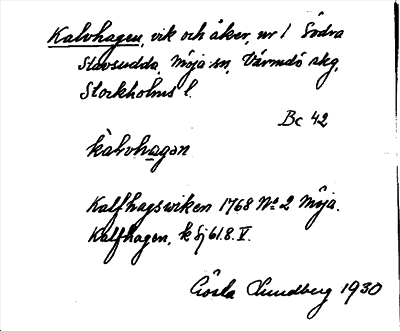 Kalvhagen, vik och åker, nr 1 Södra
Stavsudda, Möja sn, Värmdö skg,
Stockholms l.
Bc 42
kàlvhagən
Kalfhagswiken 1768 No 2 Möja.
Kalfhagen, k Sj 61.8. V.
Gösta Lundberg 1930